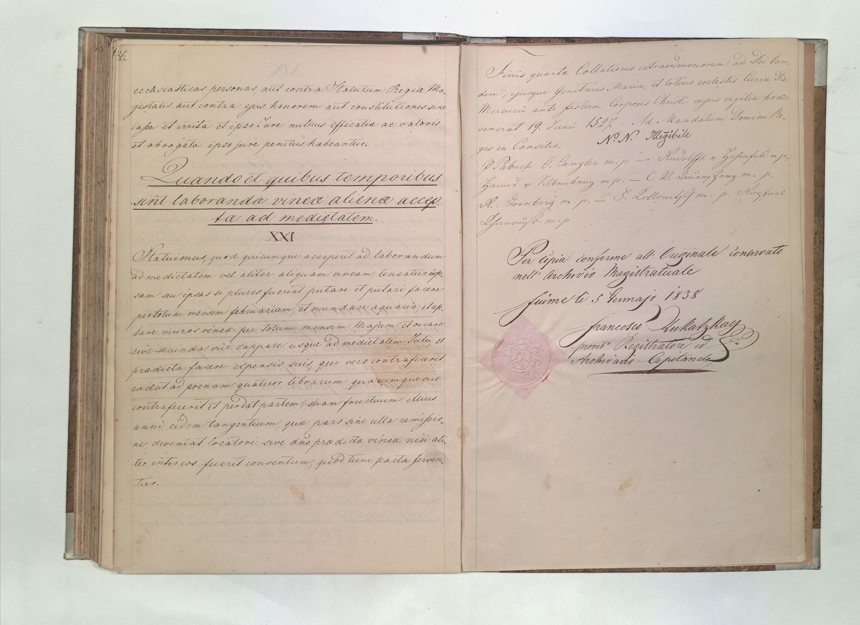 ecclesiasticas personas, aut contra Statutum Regiæ Ma,
jestatis aut contra ejus honorem aut constitutiones sint
cassa et irrita et ipso jure nullius efficatiæ ac valoris
et abrogata ipso jure penitus habeantur.
Quando et quibus temporibus
sint laboranda vineæ alienæ accep,
tæ ad medietatem.
XXI
Statuimus, quod quicumque acceperit ad laborandum
ad medietatem vel aliter aliquam vineam teneatur ip,
sam au ipsas si plures fuerint putare et putari facere
per totum mensem februarium, et mundare aquaria et ap,
tare muros vineæ per totum mensem Majum, et occare
sive secunda vice zappare usque ad medietatem Julii, et
prædicta facere expensis suis, qui vero contrafecerit
cadat ad poenam quatuor librarum quacumque vice
contrafecerit et perdat partem suam fructuum illius
anni eidem tangentium quæ pars sine ulla remissio,
ne deveniat locatori, sive dno prædictæ vineæ nisi ali,
ter inter eos fuerit conventum, quod tunc pacta serven,
tur.
Finis quarta Collationis ad Dei lau,
dem, ejusque Genitricis Mariæ, et totius coelestis Curiæ Die
Mercurii ante festum Corporis Christi cujus vigilia hora
19. Junii 1527. Ad Mandatum Domini Re,
gis in Consilio. N. N. Illegibile
m. p. — Rudolff v. m. p.
m. p. — m. p.
m. p. — m. p.
m. p.
Per copia conforme all' Originale conservato
nell' Archivio Magistratuale
Fiume li 5 Gennajo 1838
Francesco
provo Registratore ed
Archivario Capitanale